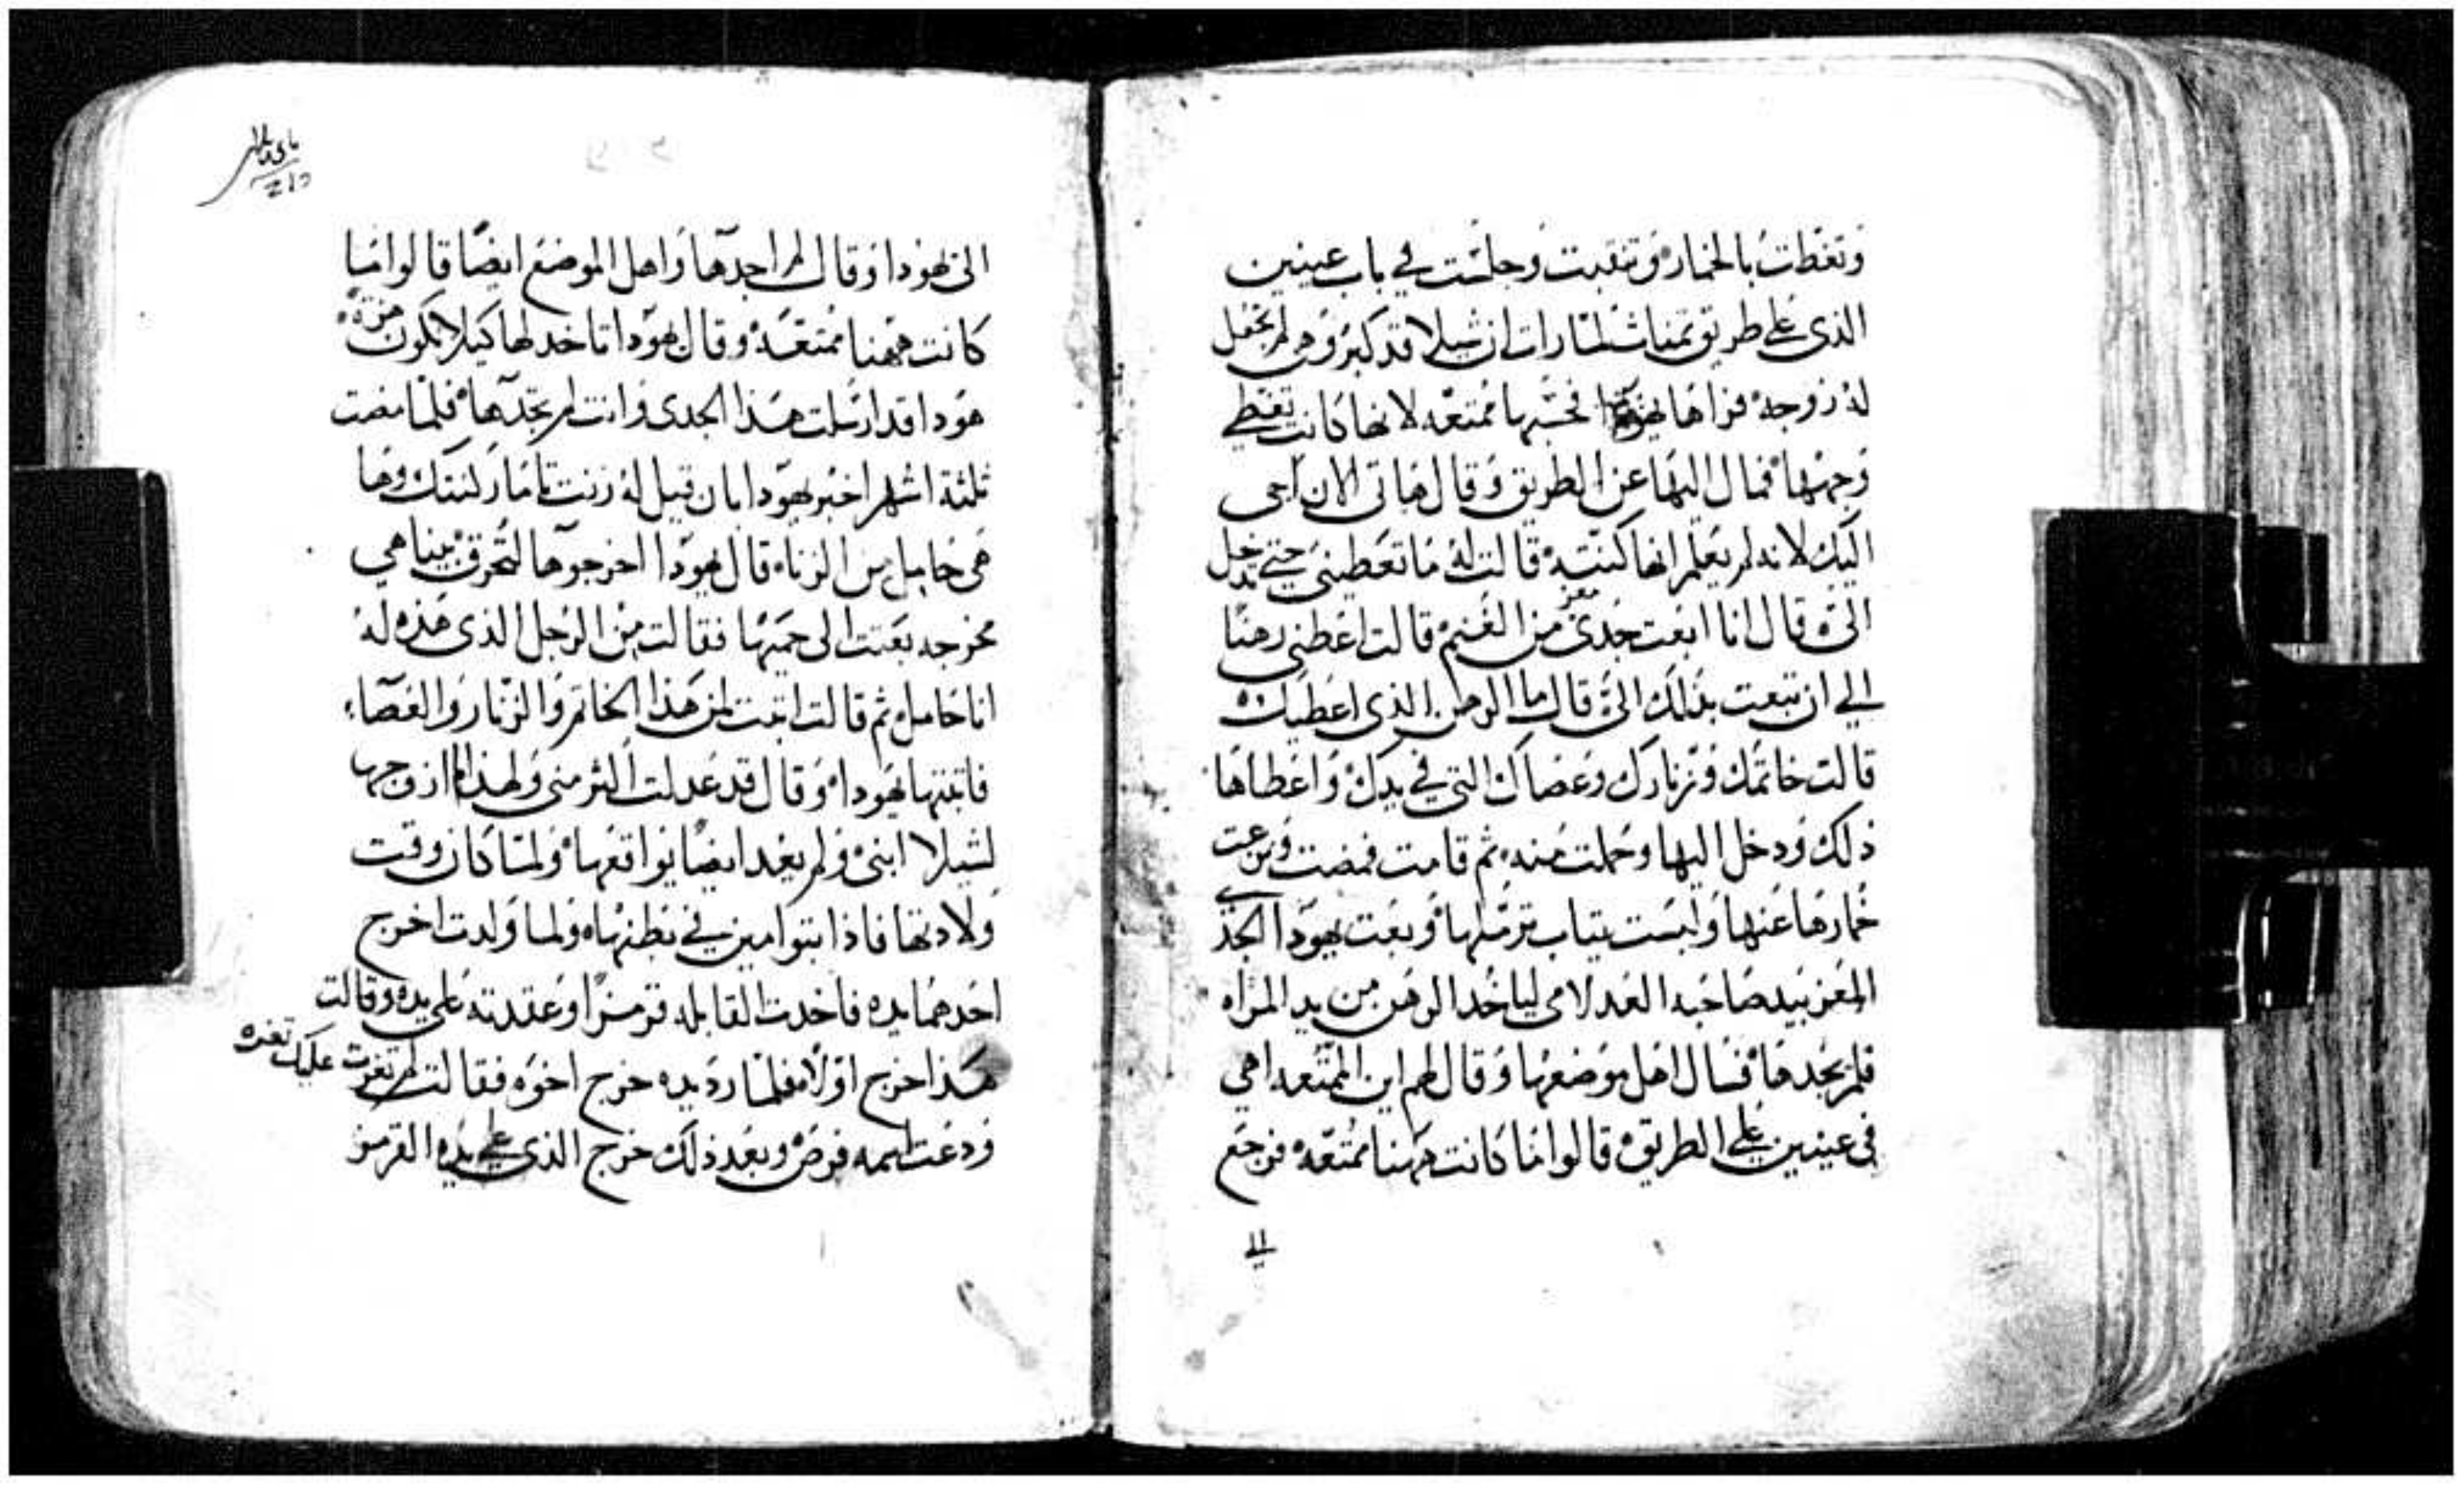 وتغطت بالخمار وتنقبت وجلست في باب عينين
الذي على طريق تمناث لما رات ان شيلا قد كبر وهي لم تجعل
له زوجه فراها يهودا فحسبها ممتعه لانها كانت تغطي
وجهها فمال اليها عن الطريق وقال هاتي الان اجي
اليك لانه لم يعلم انها كنته قالت له ما تعطيني حتي تدخل
الي قال انا ابعت جدي معز من الغنم قالت اعطني رهنا
الي ان تبعت بذلك الي قال ما الرهن الذي اعطيك
قالت خاتمك وزنارك وعصاك التي في يدك واعطاها
ذلك ودخل اليها وحملت منه ثم قامت فمضت ونزعت
خمارها عنها ولبست تياب ترملها وبعت يهودا الجدي
المعز بيد صاحبه العدلامي لياخد الرهن من يد المراه
فلم يجدها فسال اهل موضعها وقال لهم اين الممتعه اهي
في عينين على الطريق قالوا ما كانت ههنا ممتعه فرجع
الى
الى يهودا وقال لم اجدها واهل الموضع ايضا قالوا ما
كانت ههنا ممتعه وقال يهودا تاخد لها كيلا نكون هزؤه
هودا قد ارسلت هذا الجدى وانت لم تجدها فلما مضت
ثلثة اشهر اخبر يهودا بان قيل له زنت تامار كنتك وها
هي حامل من الزناء قال يهودا اخرجوها لتحرق بينا هي
مخرجه بعتت الى حميها فقالت من الرجل الذي هذه له
انا حامل ثم قالت اتبت لمن هذا الخاتم والزنار والعصاء
فاتبتها يهودا وقال قد عدلت اكثر مني ولهذا ازوجها
لشيلا ابني ولم يعد ايضا يواقعها ولما كان وقت
ولادتها فاذا بتوامين في بطنها ولما ولدت اخرج
احدهما يده فاخدت القابله قرمزا وعقدته على يده وقالت
هذا خرج اولا فلما رد يده خرج اخوه فقالت لم تغرت عليك تغره
ودعت اسمه فرض وبعد ذلك خرج الذي على يده القرمز